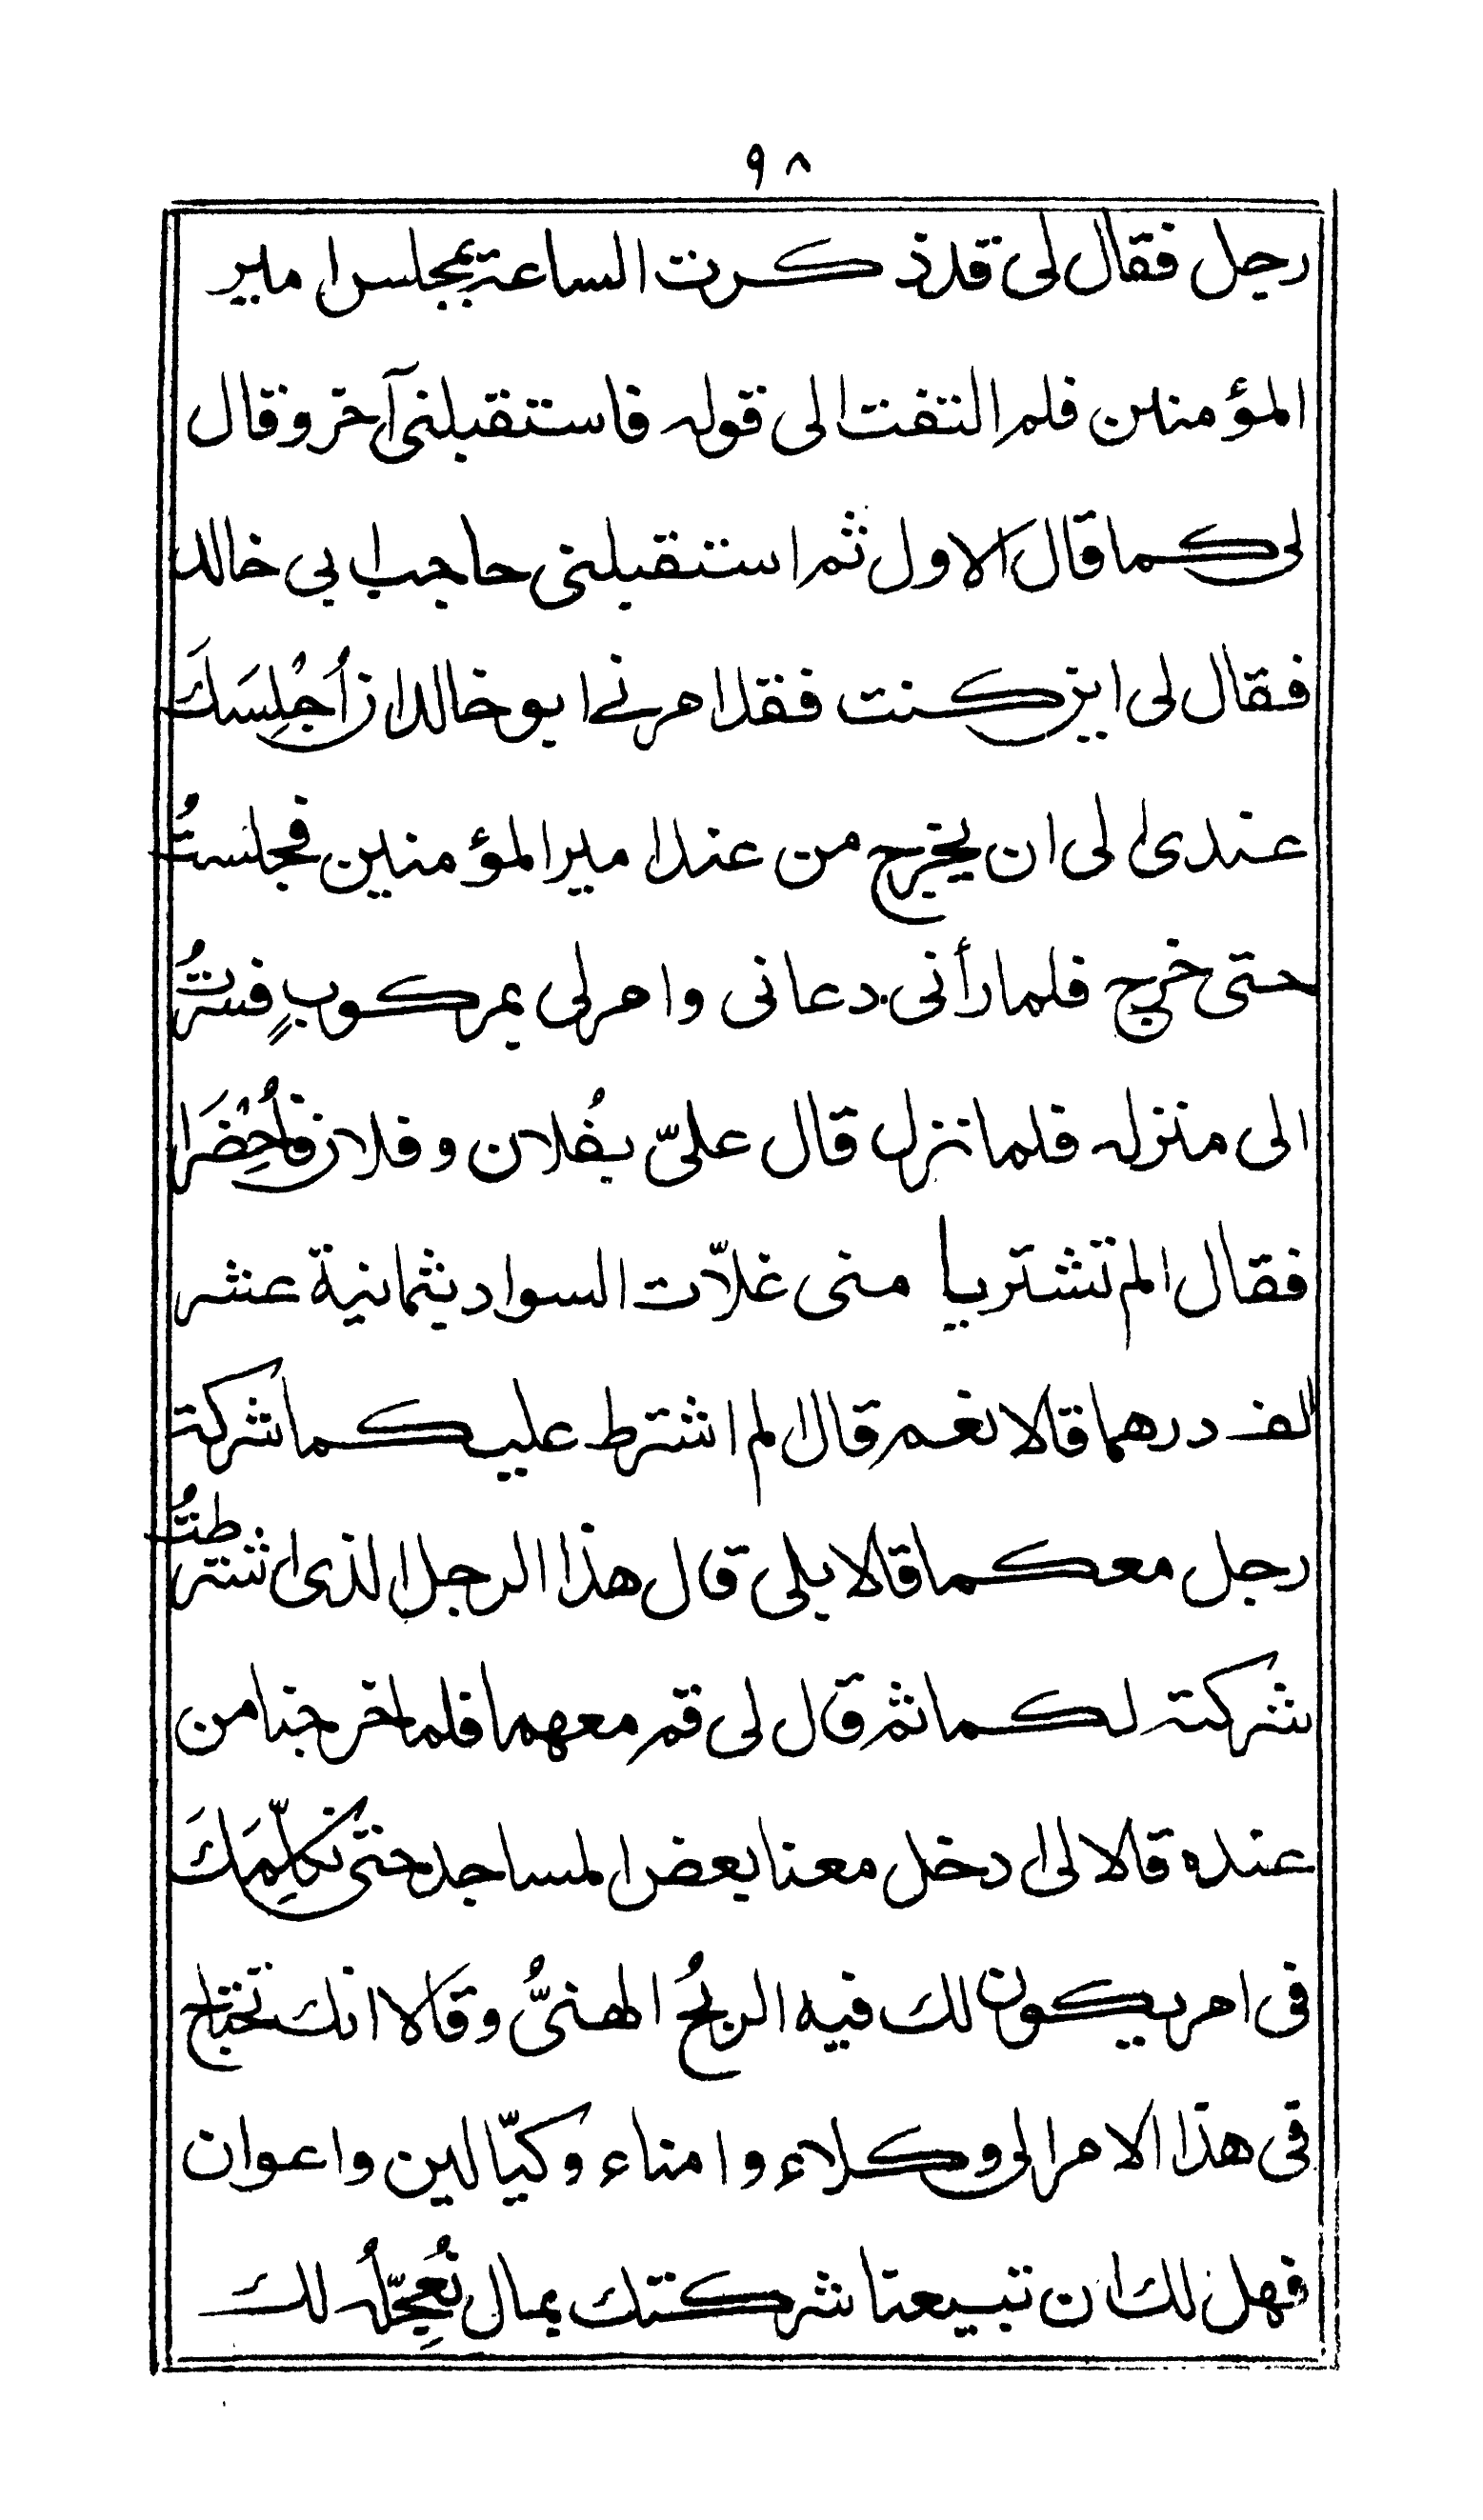 ٩٨
رجل فقال لى قد ذكرت الساعة بمجلس امير
المؤمنين فلم التفت الى قوله فاستقبلنى آخر وقال
لى كما قال الاول ثم استقبلنى حاجب ابي خالد
فقال لى اين كنت فقد امرنے ابو خالد ان اُجْلِسَكَ
عندى الى ان يخرج من عند امير المؤمنين فجلستُ
حتى خرج فلما رأنى دعانى وامر لى بمركوبٍ فسرتُ
الى منزله فلما نزل قال علىّ بفُلان وفلان فاُحْضِرَا
فقال الم تشتريا منى غلّات السواد بثمانية عشر
الف درهما قالا نعم قال الم اشترط عليكما شركة
رجل معكما قالا بلى قال هذا الرجل الذى اشترطتُ
شركته لكما ثم قال لى قم معهما فلما خرجنا من
عنده قالا لى ادخل معنا بعض المساجد حتى نكلِّمَكَ
فى امر يكون لك فيه الربحُ الهنىُّ وقالا انك تحتاج
فى هذا الامر الى وكلاء وامناء وكيّالين واعوان
فهل لك ان تبيعنا شركتك بمال نُعجِّلُه لك